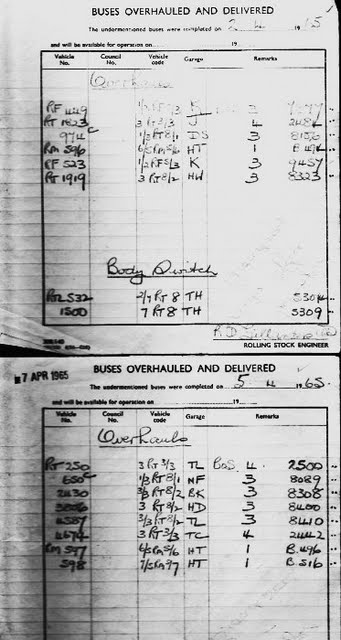 BUSES OVERHAULED AND DELIVERED
The undermentioned buses were completed on 2 4 1965
and will be available for operation on 19
Vehicle No. Council No. Vehicle code Garage Remarks
Overhauls
RF 449
RT 1823 3 RT 3/3 J 4 2484
974 c 1/3 RT 8/1 DS 3 8156
RM 596 6/5 RM 5/6 HT 1 B.494
RF 523 1/2 RF 5/3 K 3 9457
RT 1919 3 RT 8/2 HW 3 8323
Body Switch
RTL 532 7 RT 8 TH 5304
1500 7 RT 8 TH 5309
ROLLING STOCK ENGINEER
7 APR 1965
BUSES OVERHAULED AND DELIVERED
The undermentioned buses were completed on 5 4 1965
and will be available for operation on 19
Vehicle No. Council No. Vehicle code Garage Remarks
Overhauls
RT 250 3 RT 3/3 TL BoS 4 2500
650 c 1/3 RT 8/1 NF 3 8089
2430 3/3 RT 8/2 BK 3 8308
3 RT 8/2 HD 3 8400
4587 3/3 RT 8/2 TL 3 8410
4674 3 RT 3/3 TC 4 2442
RM 597 6/5 RM 5/6 HT 1 B.496
598 7/5 RM 9/7 HT 1 B.516